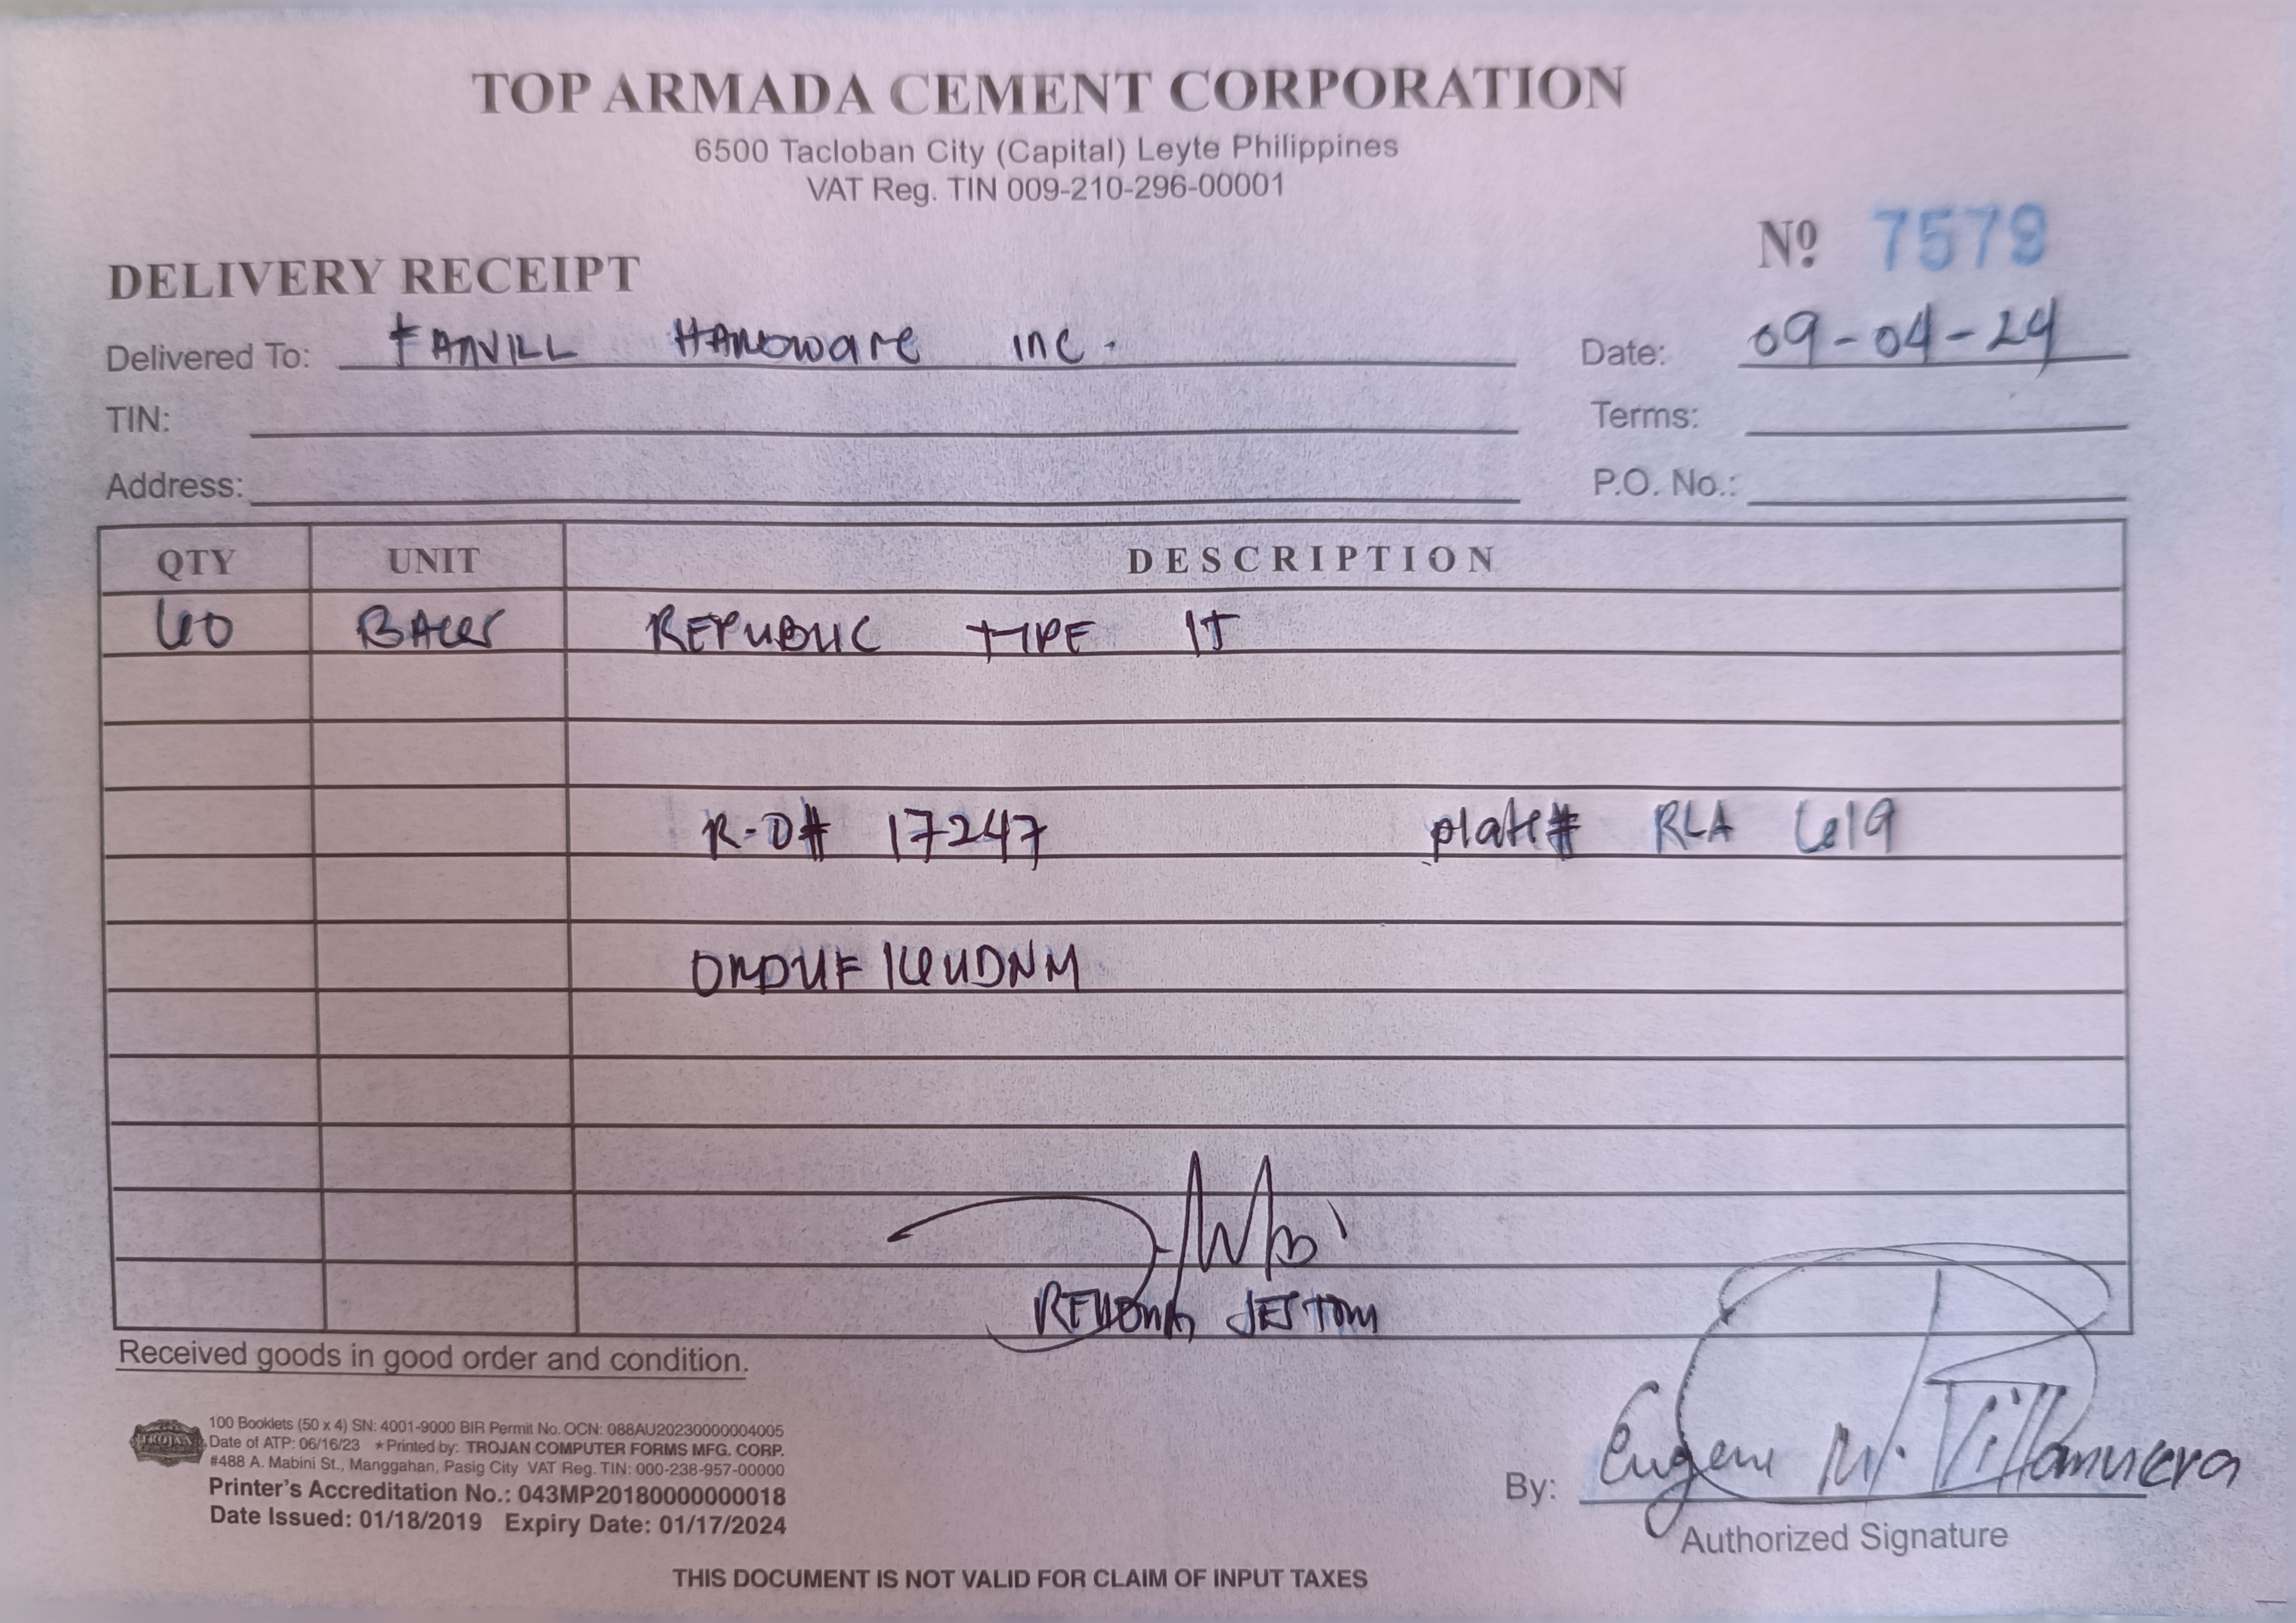 TOP ARMADA CEMENT CORPORATION
6500 Tacloban City (Capital) Leyte Philippines
VAT Reg. TIN 009-210-296-00001
Nº 7579
DELIVERY RECEIPT
Delivered To: FANVILL HARDware inc.
Date: 09-04-24
TIN:
Terms:
Address:
P.O. No.:
QTY UNIT DESCRIPTION
60 BAGS REPUBLIC TYPE 1T
R-O# 17247 plate# RLA 619
JESTONI
Received goods in good order and condition.
TROJAN
100 Booklets (50 x 4) SN: 4001-9000 BIR Permit No. OCN: 088AU20230000004005
Date of ATP: 06/16/23 *Printed by: TROJAN COMPUTER FORMS MFG. CORP.
#488 A. Mabini St., Manggahan, Pasig City VAT Reg. TIN: 000-238-957-00000
Printer's Accreditation No.: 043MP20180000000018
Date Issued: 01/18/2019 Expiry Date: 01/17/2024
By: Eugene W. Villanueva
Authorized Signature
THIS DOCUMENT IS NOT VALID FOR CLAIM OF INPUT TAXES